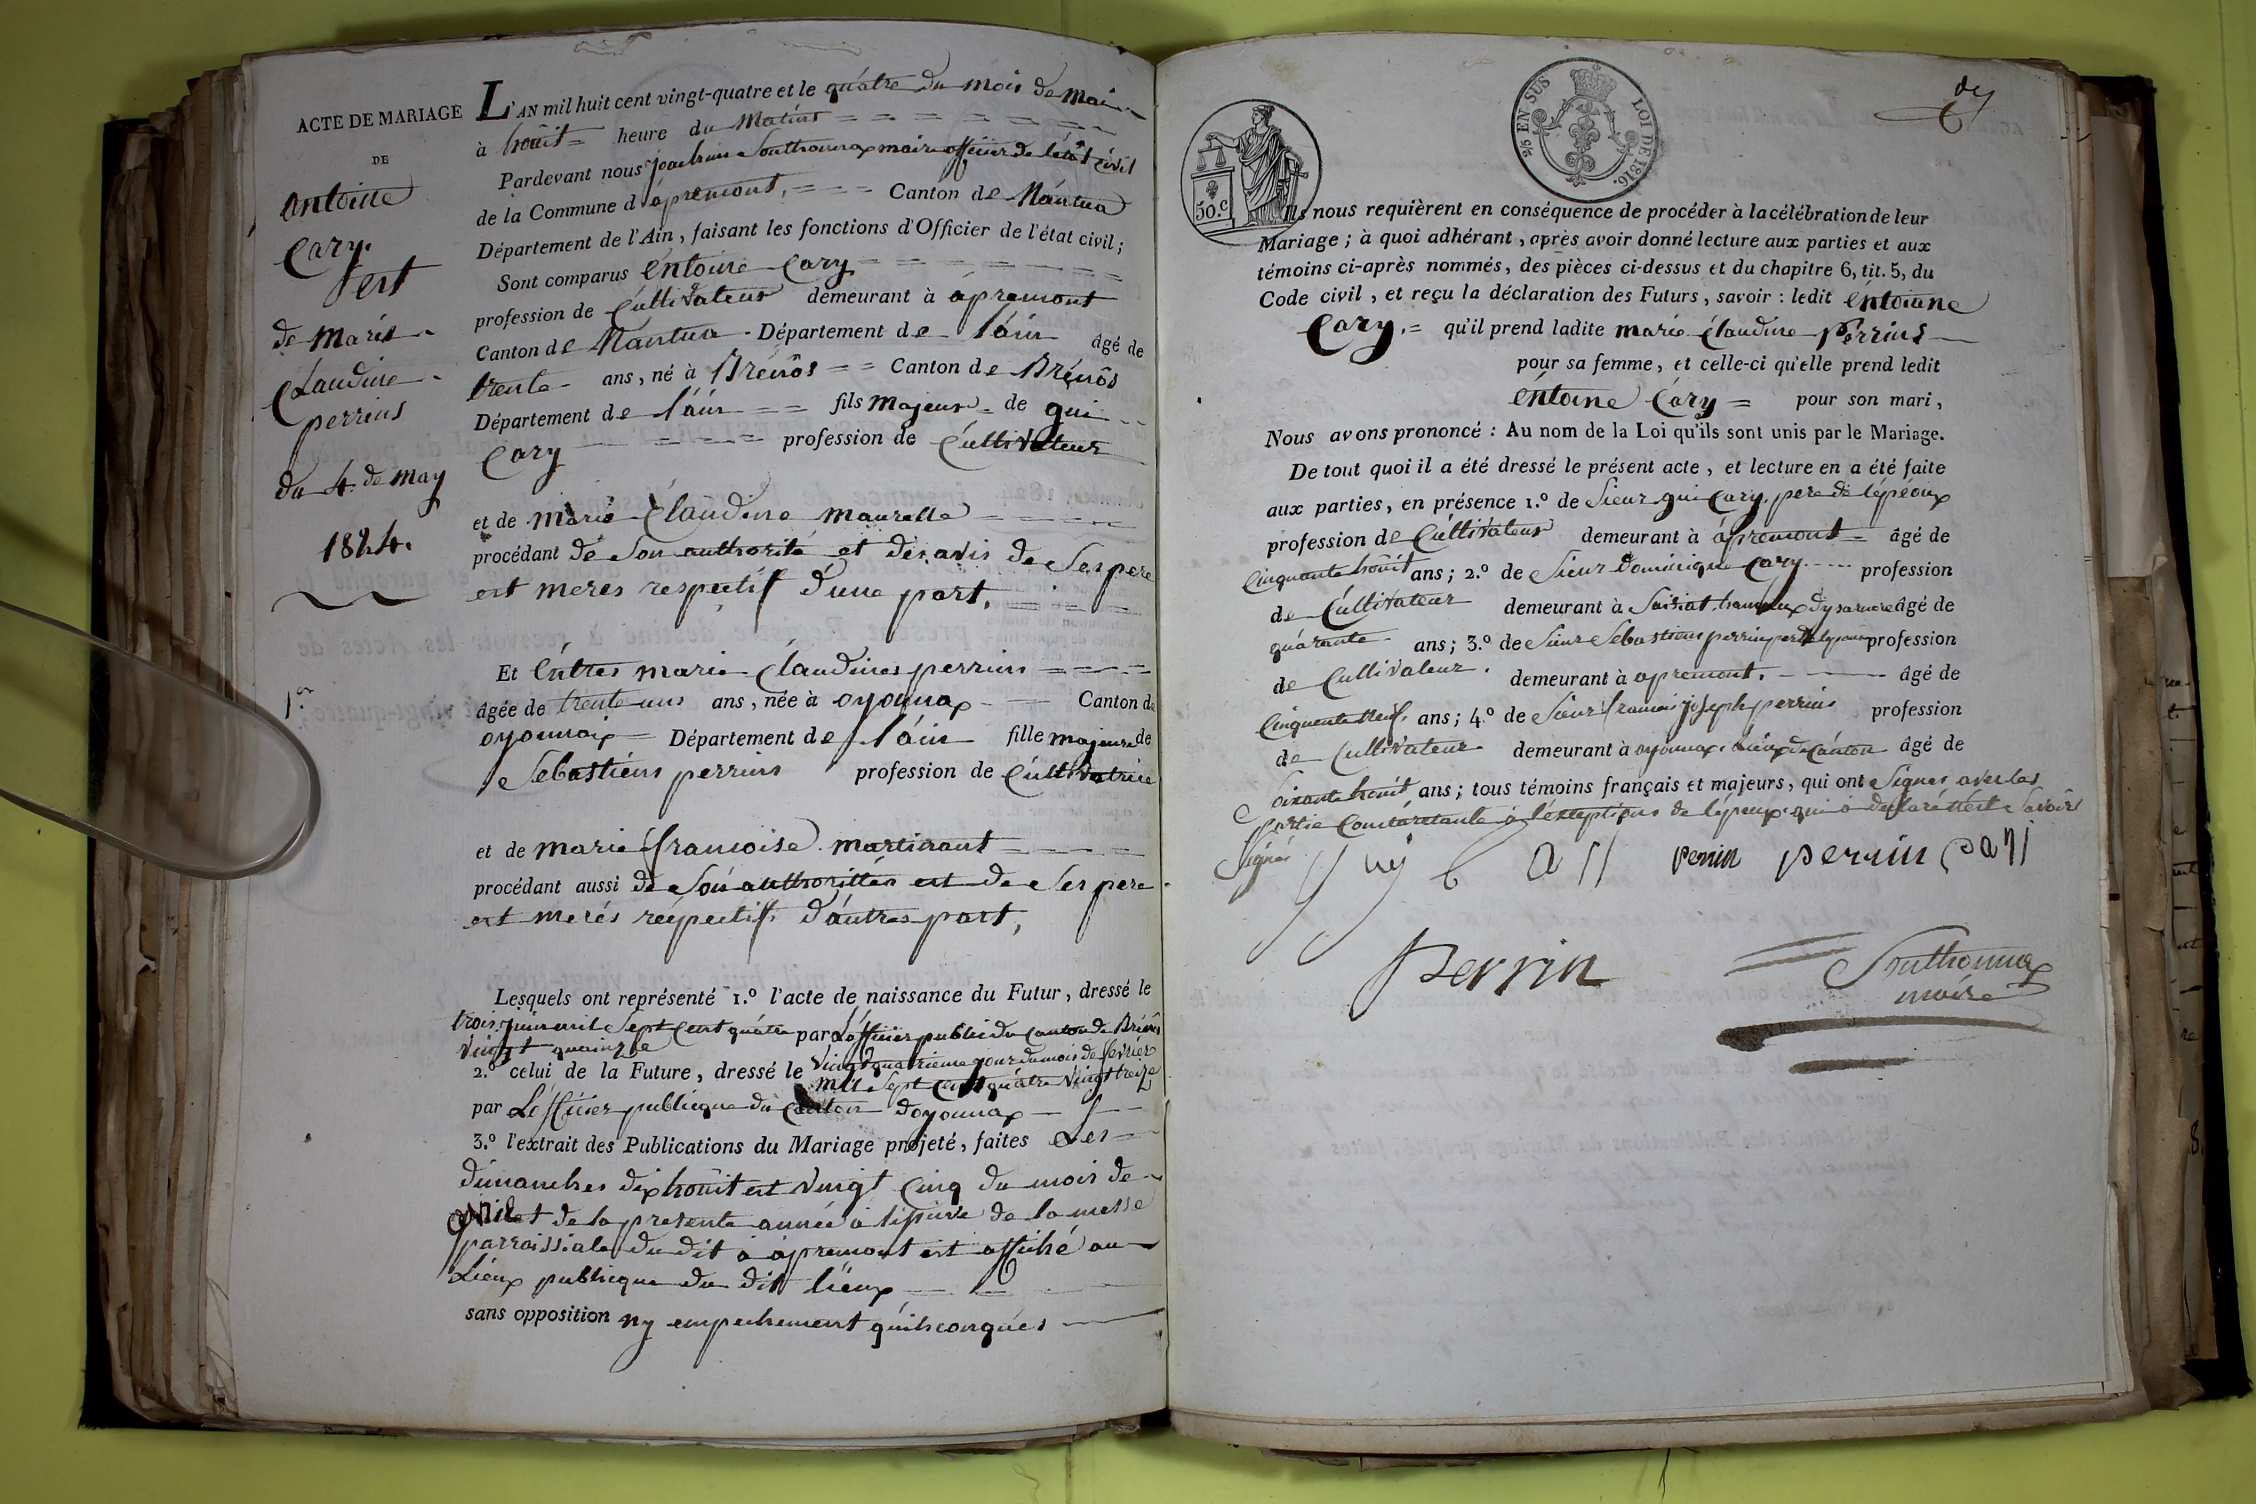 ACTE DE MARIAGE
DE
antoine
Cary.
est
de marie
Claudine
perrins
du 4. de may
1824.
L'AN mil huit cent vingt-quatre et le quatre du mois de mai
à houit = heure du Matins
Pardevant nous joachim Southonnax maire officier de létat civil
de la Commune d'apremont, Canton de Nantua
Département de l'Ain, faisant les fonctions d'Officier de l'état civil;
Sont comparus éntoine Cary
profession de Cultivateur demeurant à apremont
Canton de Nantua. Département de láin âgé de
trente ans, né à Brénôs Canton de Brénôs
Département de láin fils majeur de gui
Cary profession de Cultivateur
et de marie Claudine maurelle
procédant de Son authorité et des avis de Ses pere
est meres respectif d'une part,
1.er
Et éntres marie Claudines perrins
âgée de trente uns ans, née à oyonnax Canton de
oyonnax Département de láin fille majeure de
Sebastiens perrins profession de Cultivatrice
et de marie francoise martinant
procédant aussi de Son authorittés est de Ses pere
est merés respectifs d'autres part,
Lesquels ont représenté 1.º l'acte de naissance du Futur, dressé le
trois juin mil Sept Cent quatre par Lofficier public du Canton de Brénôs
Vingt quainze
2.º celui de la Future, dressé le Vingt quatrieme jour du mois de fevrier
mil Sept Cent quatre Vingt treize
par Lofficier publicque du Canton doyonnax
3.º l'extrait des Publications du Mariage projeté, faites Les
dimanches dix houit est Vingt Cinq du mois de
avril de la presente année a lissuve de la messe
parroissiale du dit a apremont est affiché au
Lieux publicque du dit lieux
sans opposition ny empechement quihconqués
50.C
2/5 EN SUS
LOI DE 1816.
Ils nous requièrent en conséquence de procéder à la célébration de leur
Mariage; à quoi adhérant, après avoir donné lecture aux parties et aux
témoins ci-après nommés, des pièces ci-dessus et du chapitre 6, tit. 5, du
Code civil, et reçu la déclaration des Futurs, savoir: ledit éntoinne
Cary. = qu'il prend ladite marie Claudine Perrins
pour sa femme, et celle-ci qu'elle prend ledit
éntoine Cary = pour son mari,
Nous avons prononcé: Au nom de la Loi qu'ils sont unis par le Mariage.
De tout quoi il a été dressé le présent acte, et lecture en a été faite
aux parties, en présence 1.º de Sieur gui Cary. pere de lépéoux
profession de Cultivateur demeurant à apremont = âgé de
Cinquante houit ans; 2.º de Sieur Dominique Cary profession
de Cultivateur demeurant à âgé de
quarante ans; 3.º de Sieur Sebastiens perrin profession
de Cultivateur. demeurant à apremont. âgé de
Cinquante neuf. ans; 4.º de Sieur francois joseph perrins profession
de Cultivateur demeurant à oyonnax. Lieux de Canton âgé de
Soixante houit ans; tous témoins français et majeurs, qui ont Signés avec les
partie Contractante à l'exeptions de l'épeux qui a declaré Savoir
Signés
guy Cary perrin perrin Cary
Perrin
Southonnax
maire